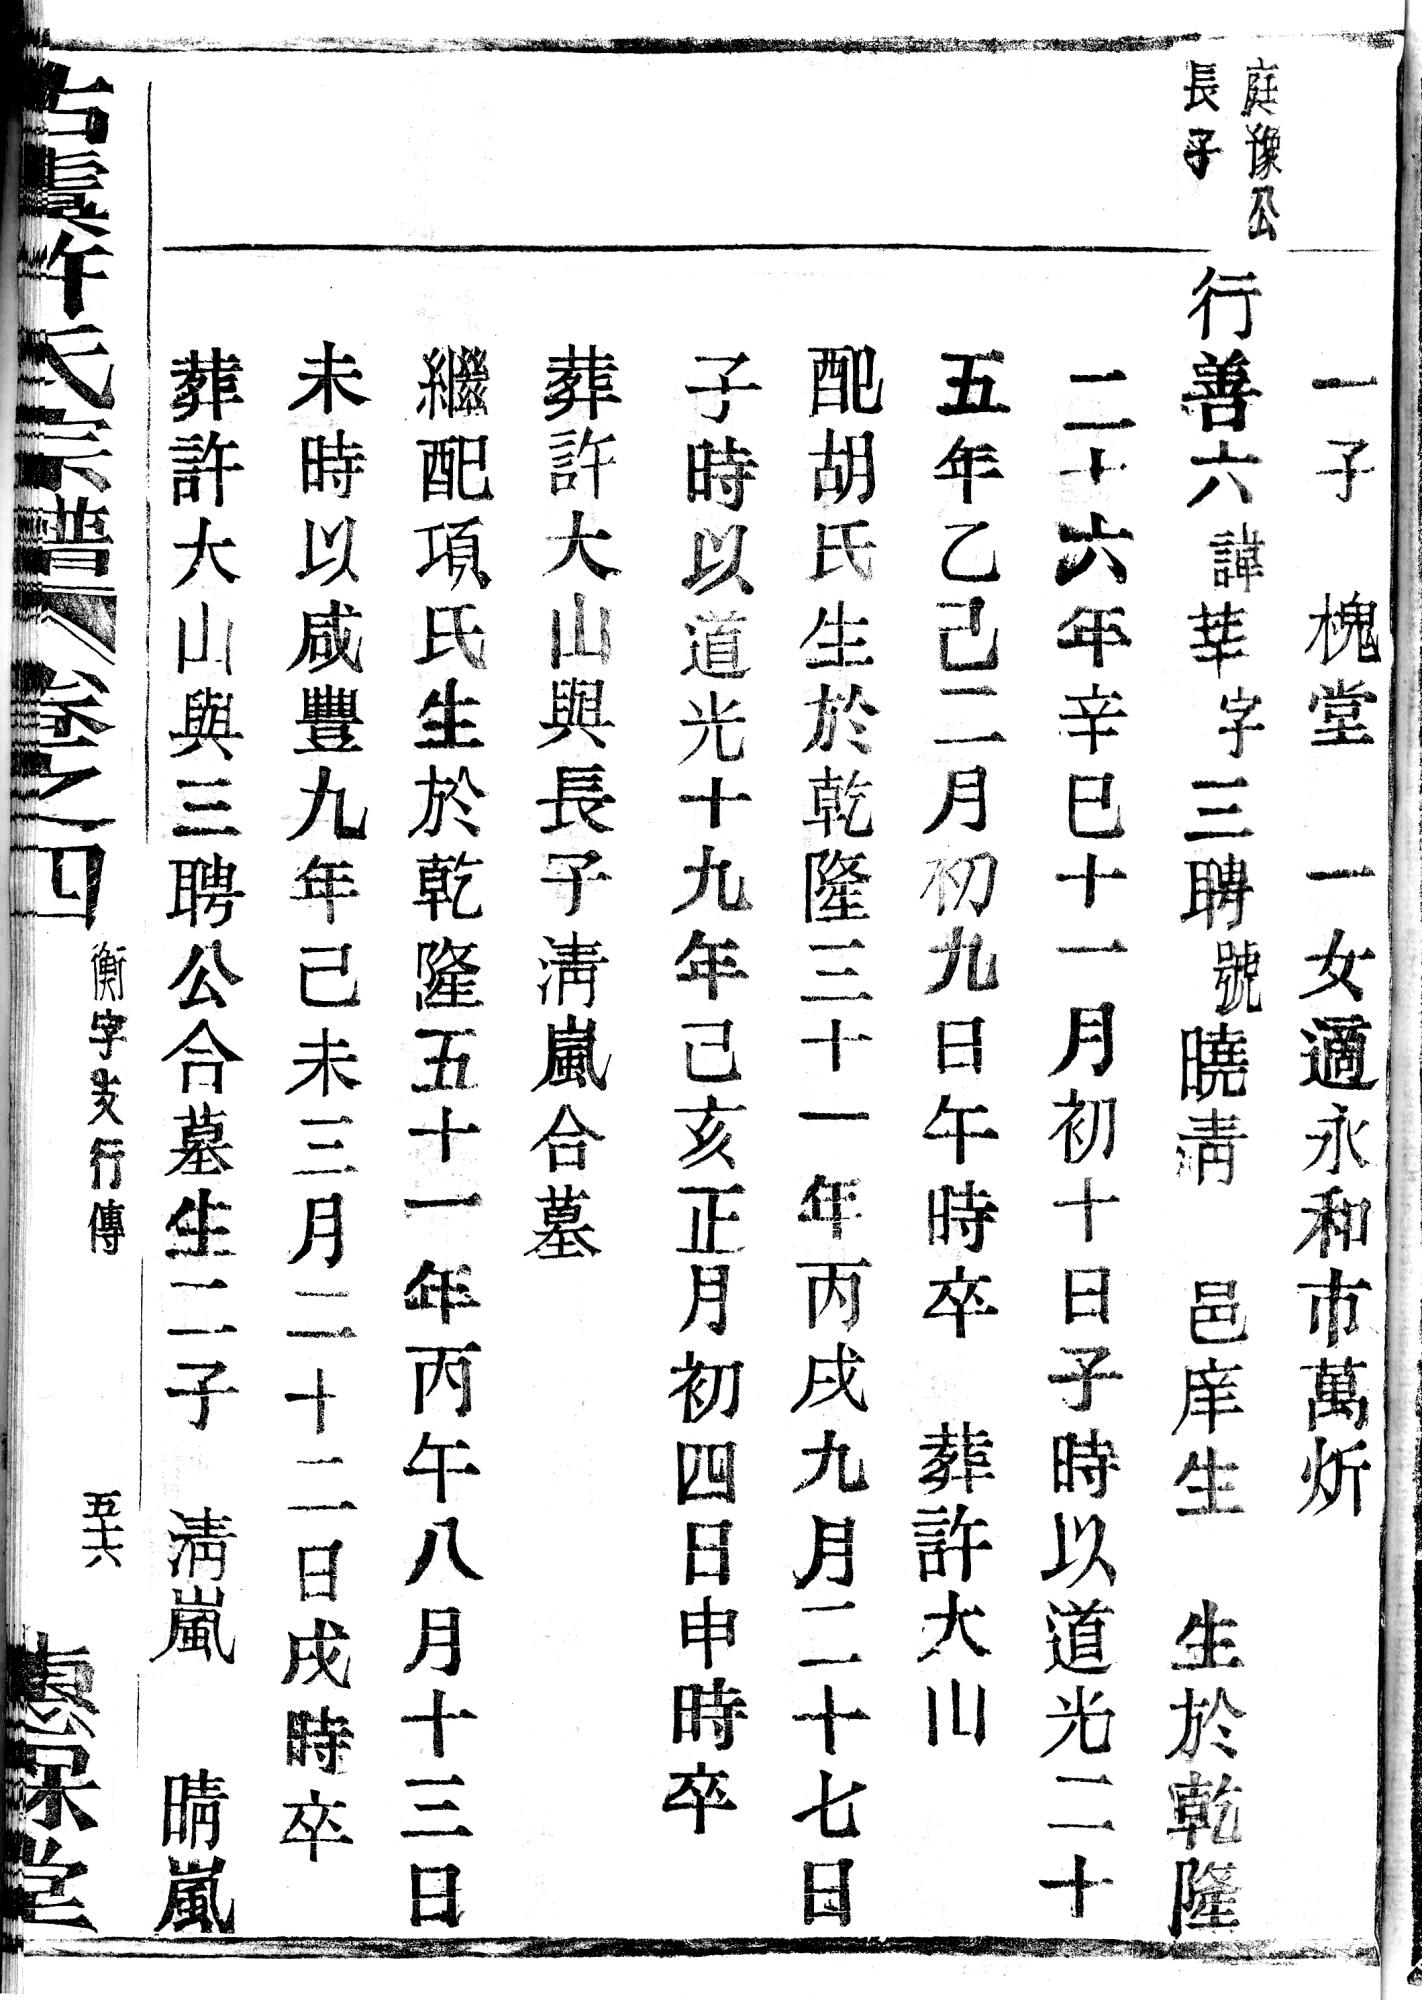 一子　槐堂　一女適永和市萬炘
庭豫公
長子
行善六諱華字三聘號曉淸　邑庠生　生於乾隆
二十六年辛巳十一月初十日子時以道光二十
五年乙巳二月初九日午時卒　葬許大山
配胡氏生於乾隆三十一年丙戌九月二十七日
子時以道光十九年己亥正月初四日申時卒
葬許大山與長子淸嵐合墓
繼配項氏生於乾隆五十一年丙午八月十三日
未時以咸豐九年己未三月二十二日戌時卒
葬許大山與三聘公合墓生二子　淸嵐　晴嵐
古虞許氏宗譜　卷之四　衡字支行傳　五十六